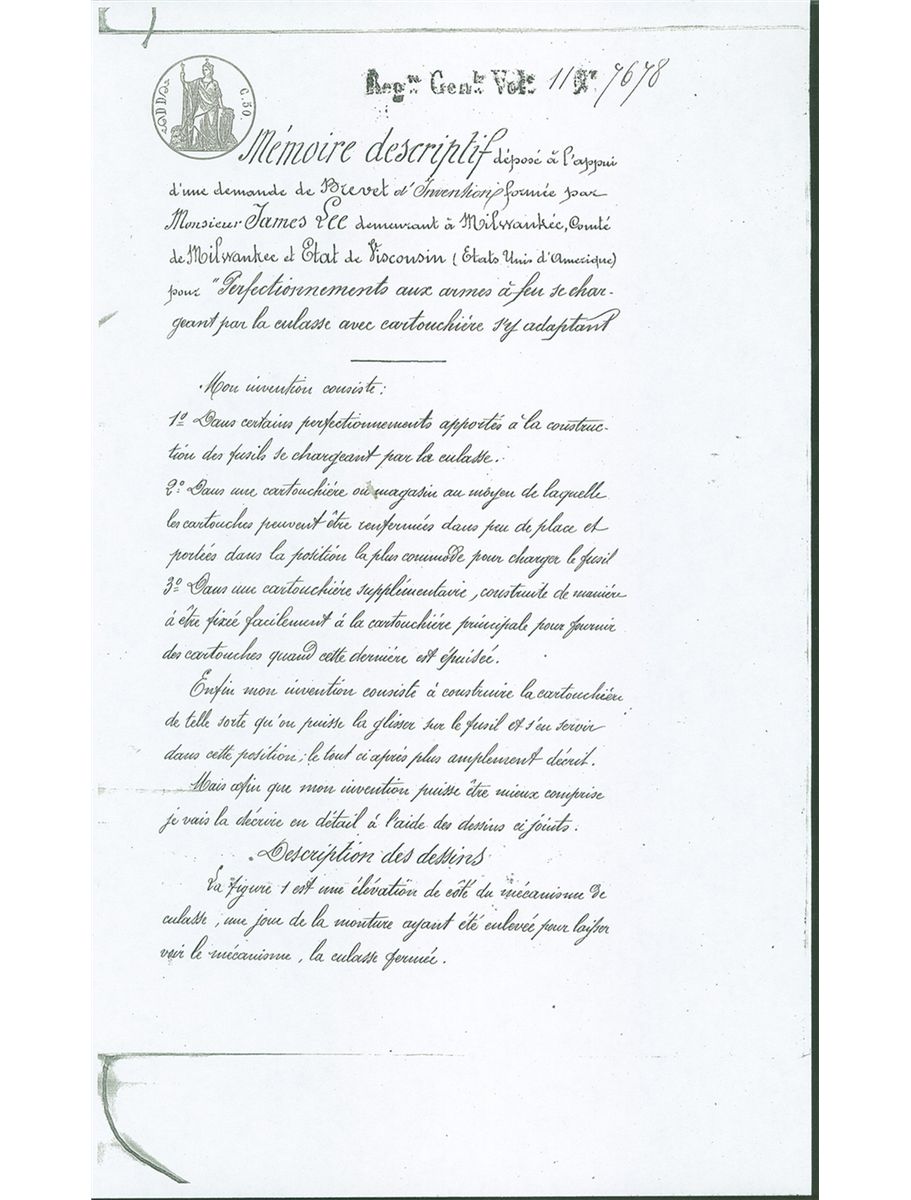 C. 50.
Reg.re Gen.le Vol.e 11 N.o 7678
Mémoire descriptif déposé à l'appui
d'une demande de Brevet d'Invention formée par
Monsieur James Lee demeurant à Milwankée, Comté
de Milwankee et Etat de Visconsin (Etats Unis d'Amérique)
pour "Perfectionnements aux armes à feu se char-
geant par la culasse avec cartouchière s'y adaptant
Mon invention consiste:
1º Dans certains perfectionnements apportés à la construc-
tion des fusils se chargeant par la culasse.
2º. Dans une cartouchière ou magasin au moyen de laquelle
les cartouches peuvent être renfermées dans peu de place et
portées dans la position la plus commode pour charger le fusil
3º Dans une cartouchière supplémentaire, construite de manière
à être fixée facilement à la cartouchière principale pour fournir
des cartouches quand cette dernière est épuisée.
Enfin mon invention consiste à construire la cartouchière
de telle sorte qu'on puisse la glisser sur le fusil et s'en servir
dans cette position; le tout ci après plus amplement décrit.
Mais afin que mon invention puisse être mieux comprise
je vais la décrire en détail à l'aide des dessins ci joints.
Description des dessins
La figure 1 est une élévation de côté du mécanisme de
culasse, une joue de la monture ayant été enlevée pour laisser
voir le mécanisme, la culasse fermée.